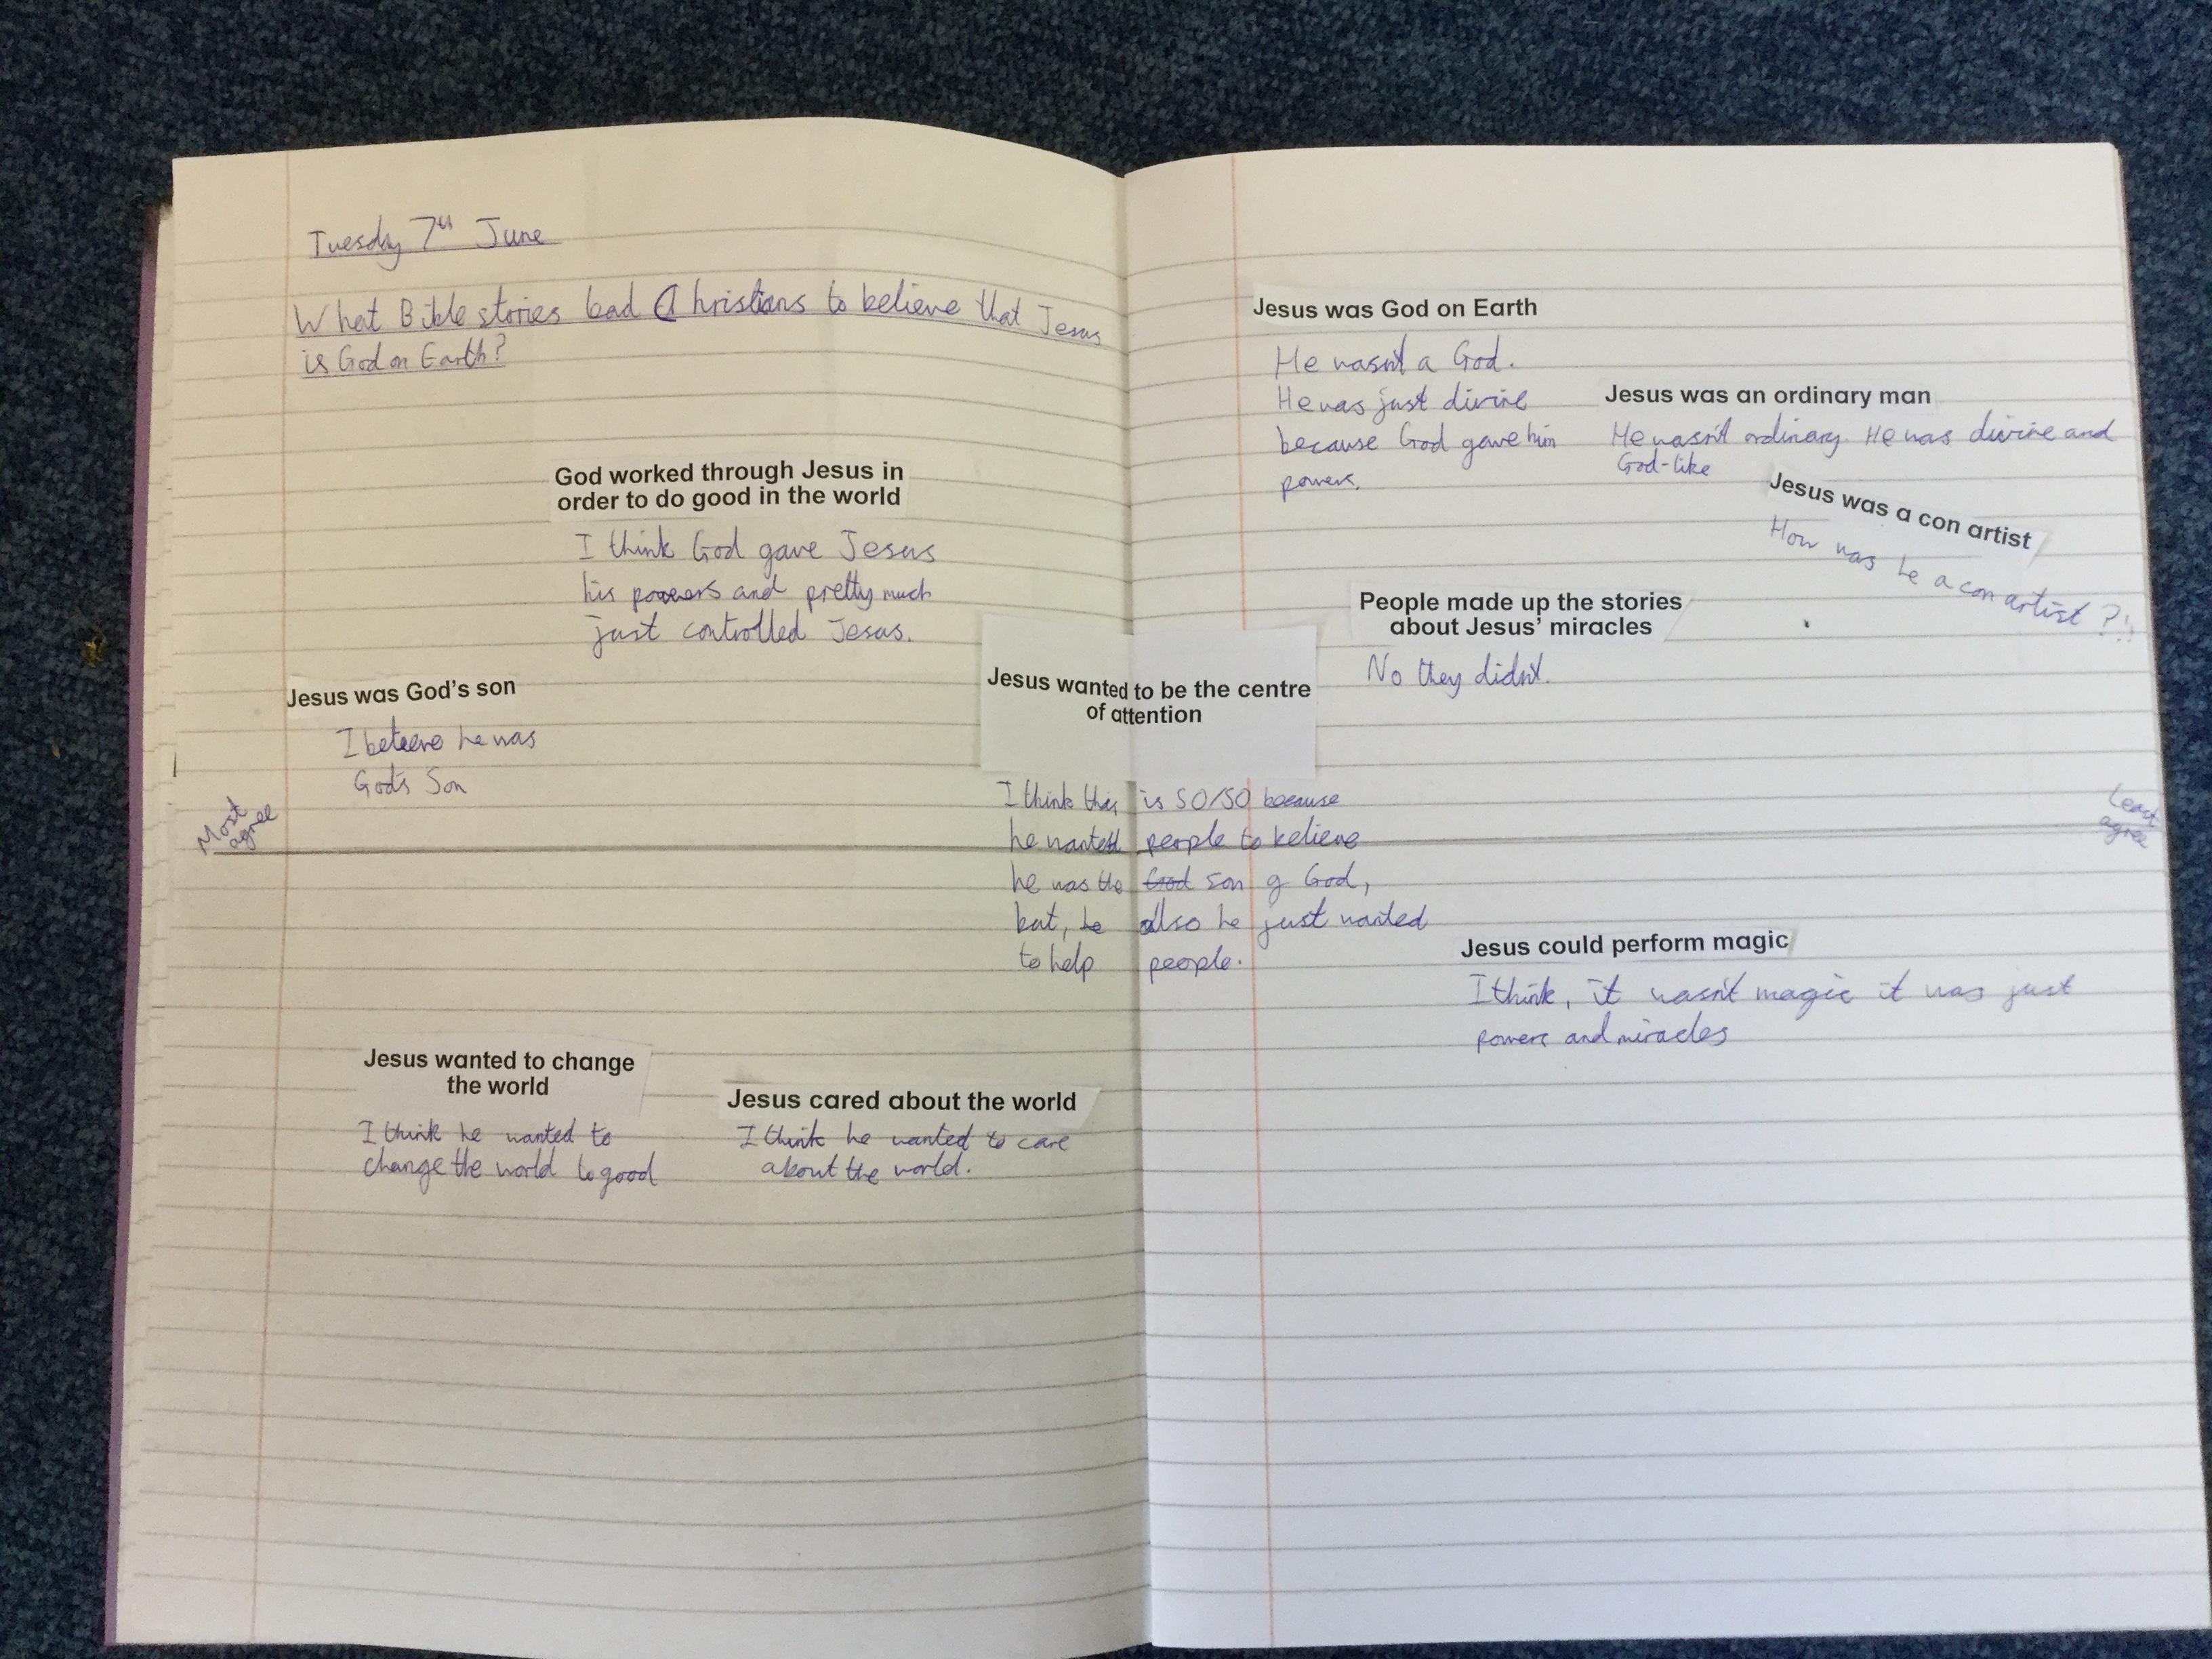 Tuesday 7th June
What Bible stories lead Christians to believe that Jesus
is God on Earth?
God worked through Jesus in
order to do good in the world
I think God gave Jesus
his powers and pretty much
just controlled Jesus.
Jesus was God's son
I believe he was
God's Son
Most
agree
Jesus wanted to change
the world
I think he wanted to
change the world to good
Jesus cared about the world
I think he wanted to care
about the world.
Jesus wanted to be the centre
of attention
I think this is 50/50 because
he wanted people to believe
he was the God son of God,
but, he also he just wanted
to help people.
Jesus was God on Earth
He wasn't a God.
He was just divine
because God gave him
powers.
Jesus was an ordinary man
He wasn't ordinary. He was divine and
God-like
Jesus was a con artist
How was he a con artist?!!
People made up the stories
about Jesus' miracles
No they didn't.
Least
agree
Jesus could perform magic
I think, it wasn't magic it was just
powers and miracles